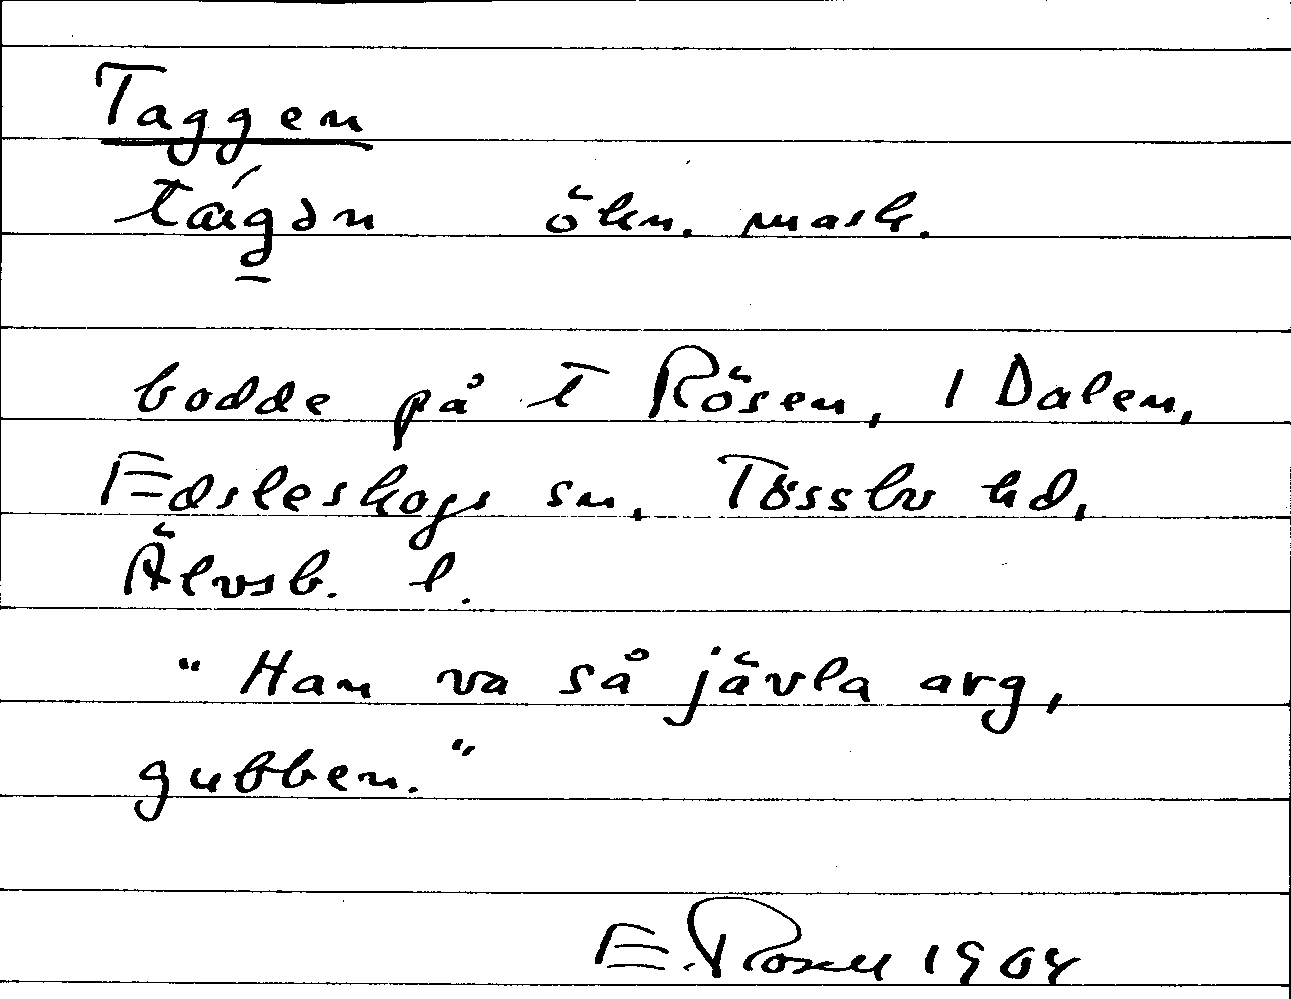 Taggen
tág̱ən ökn. mask.
bodde på t Rösen, 1 Dalen,
Edsleskogs sn, Tössbo hd,
Älvsb. l.
"Han va så jävla arg,
gubben."
E. Rosell 1964